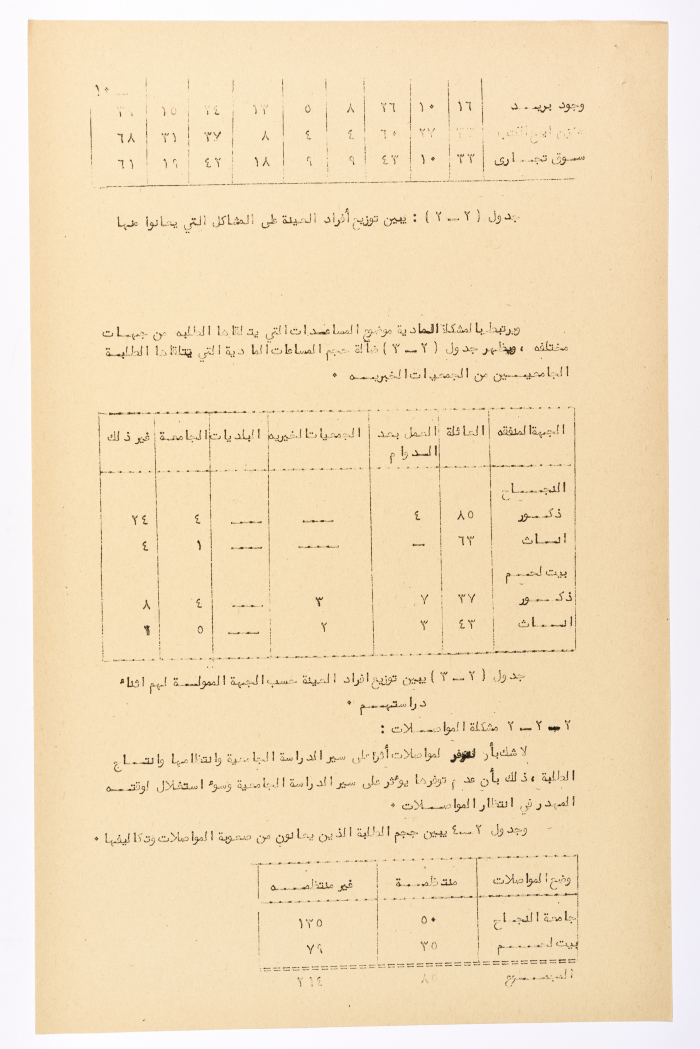 ــ ١٠
وجود بريـــد ١٦ ١٠ ٢٦ ٨ ٥ ١٣ ٢٤ ١٥ ٣٩
٢٧ ٦٠ ٤ ٤ ٨ ٣٧ ٣١ ٦٨
سـوق تجـــارى ٣٣ ١٠ ٤٣ ٩ ٩ ١٨ ٤٢ ١٩ ٦١
جدول ( ٢ ــ ٢ ) : يبين توزيع أفراد العينة على المشاكل التي يعانوا منها
ويرتبط بالمشكلة المادية موضوع المساعدات التي يتلقاها الطلبه من جهـــات
مختلفه ، ويظهر جدول ( ٢ ــ ٣ ) ضآلة حجم المساعات المادية التي يتلقاها الطلبـة
الجامعيـــين من الجمعيـات الخيريــه ٠
الجهة المنفقه العائلة العمل بعد الجمعيات الخيريه البلديات الجامعـة غير ذلك
الـدوام
النجـــاح
ذكـــور ٨٥ ٤ ـــ ـــ ٤ ٢٤
انـــاث ٦٣ ــ ـــ ـــ ١ ٤
بيت لحـــم
ذكـــور ٣٧ ٧ ٣ ـــ ٤ ٨
انـــاث ٤٣ ٣ ٢ ـــ ٥
جدول ( ٢ ــ ٣ ) يبين توزيع افراد العينة حسب الجهة الممولـــة لهم اثناء
دراستهــم ٠
٢ ــ ٢ ــ ٢ مشكلة المواصــلات :
لا شك بأن لتوفر المواصلات أثرا على سير الدراسة الجامعية وانتظامها وانتـــاج
الطلبة ، ذلك بأن عدم توفرها يؤثر على سير الدراسة الجامعية وسوء استغلال اوقتـــه
المهدر في انتظار المواصـــلات ٠
وجدول ٢ ــ ٤ يبين حجم الطلبة الذين يعانون من صعوبة المواصلات وتكاليفها ٠
وضع المواصلات منتظمـــة غير منتظمـــه
جامعة النجـاح ٥٠ ١٣٥
بيت لحـــم ٣٥ ٧٩
المجمـــوع ٨٥ ٢١٤